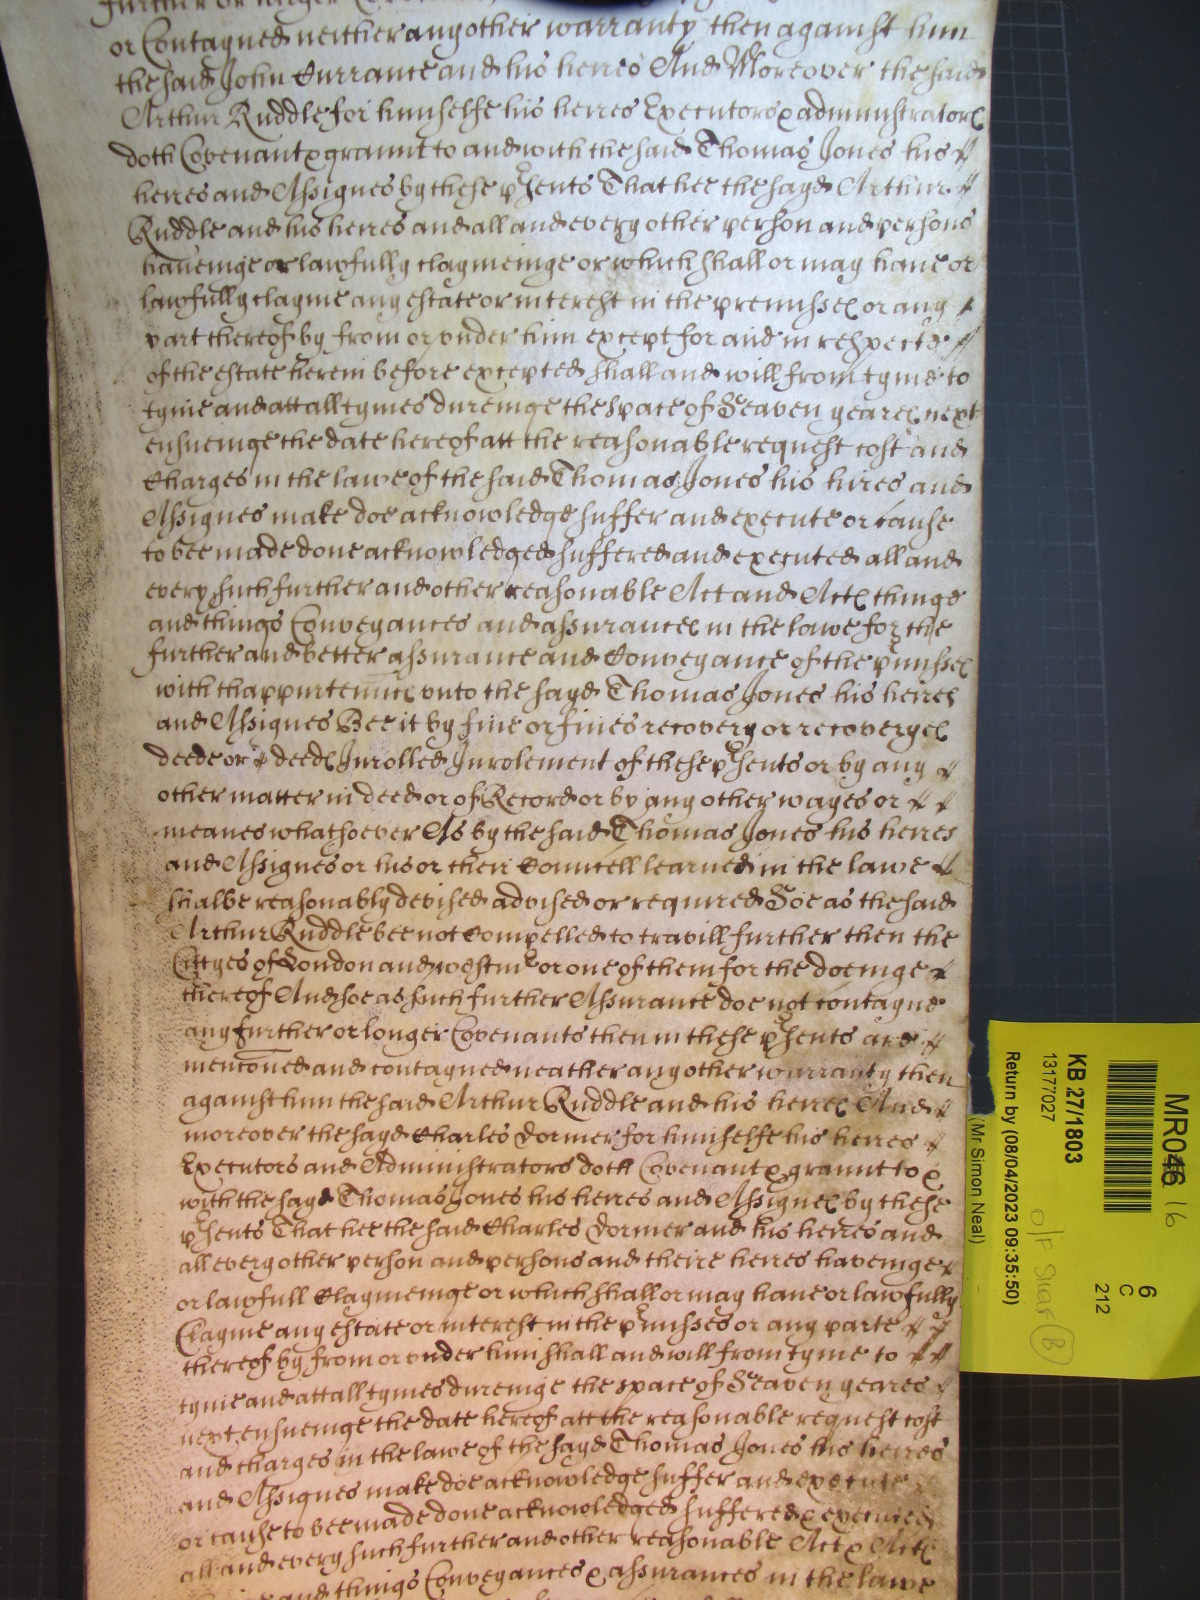 further or larger
or Contayned neither any other warranty then against him
the said John Currance and his heires And Moreover the said
Arthur Ruddle for himselfe his heires Executors & administrators
doth Covenant & graunt to and with the said Thomas Jones his
heires and Assignes by these psents That hee the sayd Arthur
Ruddle and his heires and all and every other person and persons
haueinge or lawfully claymeinge or which shall or may haue or
lawfully clayme any estate or interest in the premisses or any
part thereof by from or vnder him except for and in respecte
of the estate herein before excepted shall and will from tyme to
tyme and att all tymes dureinge the space of Seaven yeares next
ensueinge the date hereof att the reasonable request cost and
Charges in the lawe of the said Thomas Jones his heires and
Assignes make doe acknowledge suffer and execute or cause
to bee made done acknowledged suffered and executed all and
every such further and other reasonable Act and Actes thinge
and things Conveyances and assurances in the lawe for the
further and better assurance and Conveyance of the pmisses
with thappurtennces vnto the sayd Thomas Jones his heires
and Assignes Bee it by fine or fines recovery or recoveryes
deede or deedes Inrolled Inrolement of these psents or by any
other matter in deed or of Record or by any other wayes or
meanes whatsoever As by the said Thomas Jones his heires
and Assignes or his or their Councell learned in the lawe
shalbe reasonably devised advised or required Soe as the said
Arthur Ruddle bee not Compelled to travill further then the
Cittyes of London and westmr or one of them for the doeinge
thereof And soe as such further Assurance doe not contayne
any further or longer Covenants then in these psents are
menconed and contayned neather any other warranty then
against him the said Arthur Ruddle and his heires And
moreover the sayd Charles Dormer for himselfe his heires
Executors and Administrators doth Covenant & graunt to &
with the sayd Thomas Jones his heires and Assignes by these
psents That hee the said Charles Dormer and his heires and
all every other person and persons and theire heires haveinge
or lawfull Claymeinge or which shall or may haue or lawfully
Clayme any estate or interest in the pmisses or any parte
thereof by from or vnder him shall and will from tyme to
tyme and att all tymes dureinge the space of Seaven yeares
next ensueinge the date hereof att the reasonable request cost
and charges in the lawe of the sayd Thomas Jones his heires
and Assignes make doe acknowledge suffer and execute
or cause to bee made done acknowledged suffered & executed
all and every such further and other reasonable Act & Actes
and things Conveyances & assurances in the lawe
MR046 16
6
C
212
KB 27/1803
13177027
O/F Staff (B)
Return by (08/04/2023 09:35:50)
(Mr Simon Neal)